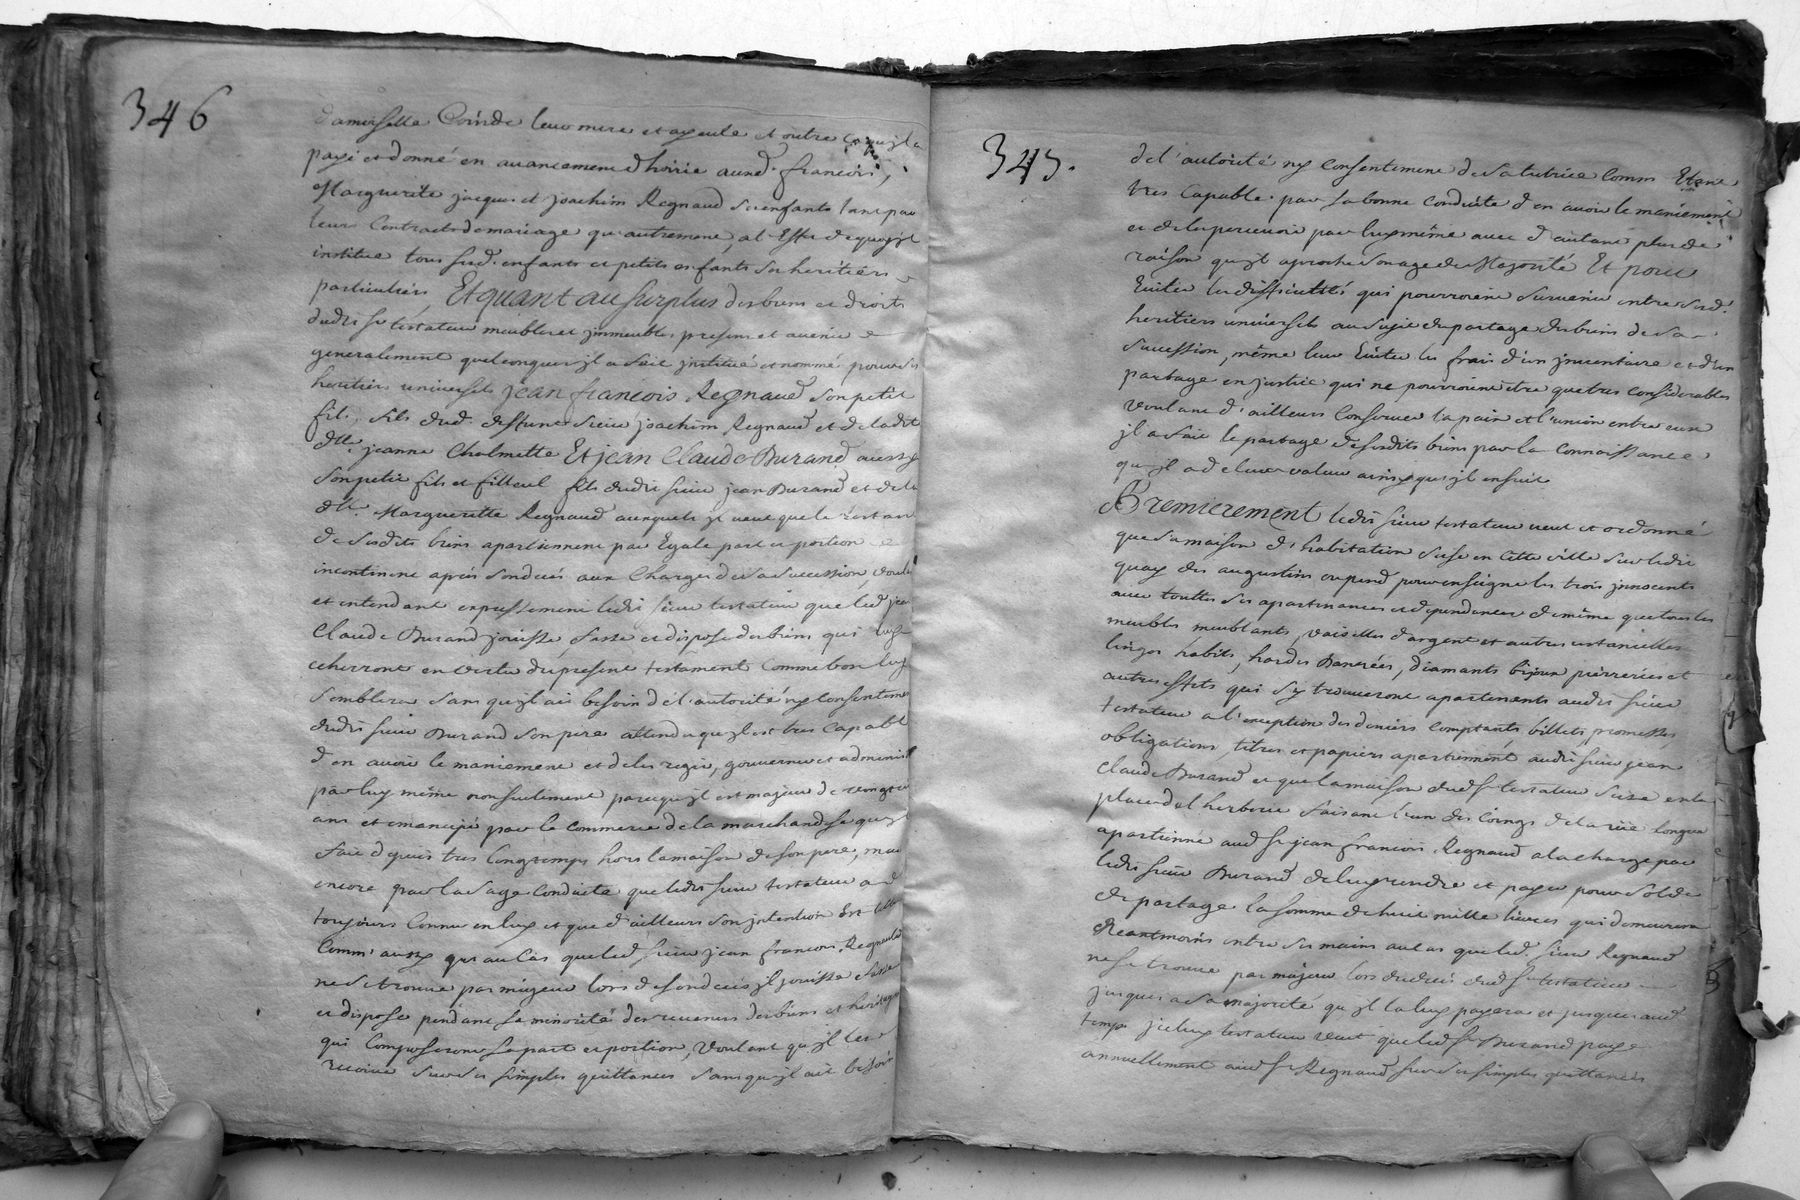 346
damoiselle Coinde leur mere et ayeule et outre ce qu'jl a
payé et donné en avancement d'hoirie aund. francois,
Marguerite jacques et joachim Regnaud ses enfants tant par
leurs Contracts de mariage qu'autrement al Effet de quoy jl
institue tous sesd. enfants et petits enfants ses heritiers
particuliers, Et quant au surplus des biens et droits
dudit sr testateur meubles et jmmeubles presens et avenir
generalement quelconques jl a fait jnstitué et nommé pour ses
heritiers universels jean francois Regnaud son petit
fils, fils dud. deffunt sieur joachim Regnaud et de ladit
dlle. jeanne Chalmette Et jean Claude Durand aussy
son petit fils et filleul fils dudit sieur jean Durand et de la
dlle. Margueritte Regnaud auxquels jl veut que le restant
de sesdits biens apartiennent par Egale part et portion
incontinent aprés son decés aux Charges de sa succession, voulant
et entendant expressement ledit sieur testateur que led jean
Claude Durand jouisse, fasse et dispose des biens qui luy
echerront en vertu du present testament Comme bon luy
semblera sans qu'jl ait besoin de l'autorité ny Consentement
dudit sieur Durand son pere attendu qu'jl est tres Capable
d'en avoir le maniement et de les regir, gouverner et administrer
par luy même non seulement parcequ'jl est majeur de vingt
ans et emancipé par le Commerce de la marchandise qu'jl
fait depuis tres longtemps hors la maison de son pere, mais
encore par la sage Conduite que ledit sieur testateur a
toujours Connu en luy et que d'ailleurs son jntention Est telle
Comm' aussy qu'au Cas que led. sieur jean francois Regnaud
ne se trouve pas majeur lors de son decés jl jouisse fasse
et dispose pendant sa minorité des revenus des biens et heritages
qui Composeront sa part et portion, Voulant qu'jl les
recoive sur ses simples quittances sans qu'jl ait besoin
345.
de l'autorité ny Consentement de sa tutrice Comm Etant
tres Capable par sa bonne Conduite d'en avoir le maniement
et de les percevoir par luy même avec d'autant plus de
raison qu'jl aproche son age de Majorité Et pour
Eviter les difficultés qui pourroient survenir entre sesd.
heritiers universels au sujet du partage des biens de sa
succession, même leur Eviter les frais d'un jnventaire et d'un
partage en justice qui ne pourroient etre que tres considerables
Voulant d'ailleurs Conserver la paix et l'union entre eux
jl a fait le partage de sesdits biens par la Connoissance
qu'jl a de leur valeur ainsy qu'jl ensuit
Premierement ledit sieur testateur veut et ordonne
que sa maison d'habitation sise en cette ville sur ledit
quay des augustins ou pend pour enseigne les trois jnnocents
avec touttes ses apartenances et dependances de même que tous les
meubles meublants, vaiselles d'argent et autres ustancilles
linges habits, hardes Danrées, diamants bijoux pierreries et
autres effets qui s'y trouveront apartenants audit sieur
testateur a l'exception des deniers Comptants billets, promesses,
obligations, titres et papiers apartiennent audit sieur jean
Claude Durand et que la maison dudt sr testateur sise en la
place de l'herberie faisant l'un des Coings de la rüe longue
apartienne aud sr jean francois Regnaud a la charge par
ledit sieur Durand de luy rendre et payer pour solde
de partage la somme de huit mille livres qui demeurera
Neantmoins entre ses mains au cas que led. sieur Regnaud
ne se trouve pas majeur lors du decés dud sr testateur
jusques a sa majorité qu'jl la luy payera et jusques aud
temps jceluy testateur veut que led sr Durand paye
annuellement aud sr Regnaud sur ses simples quittances